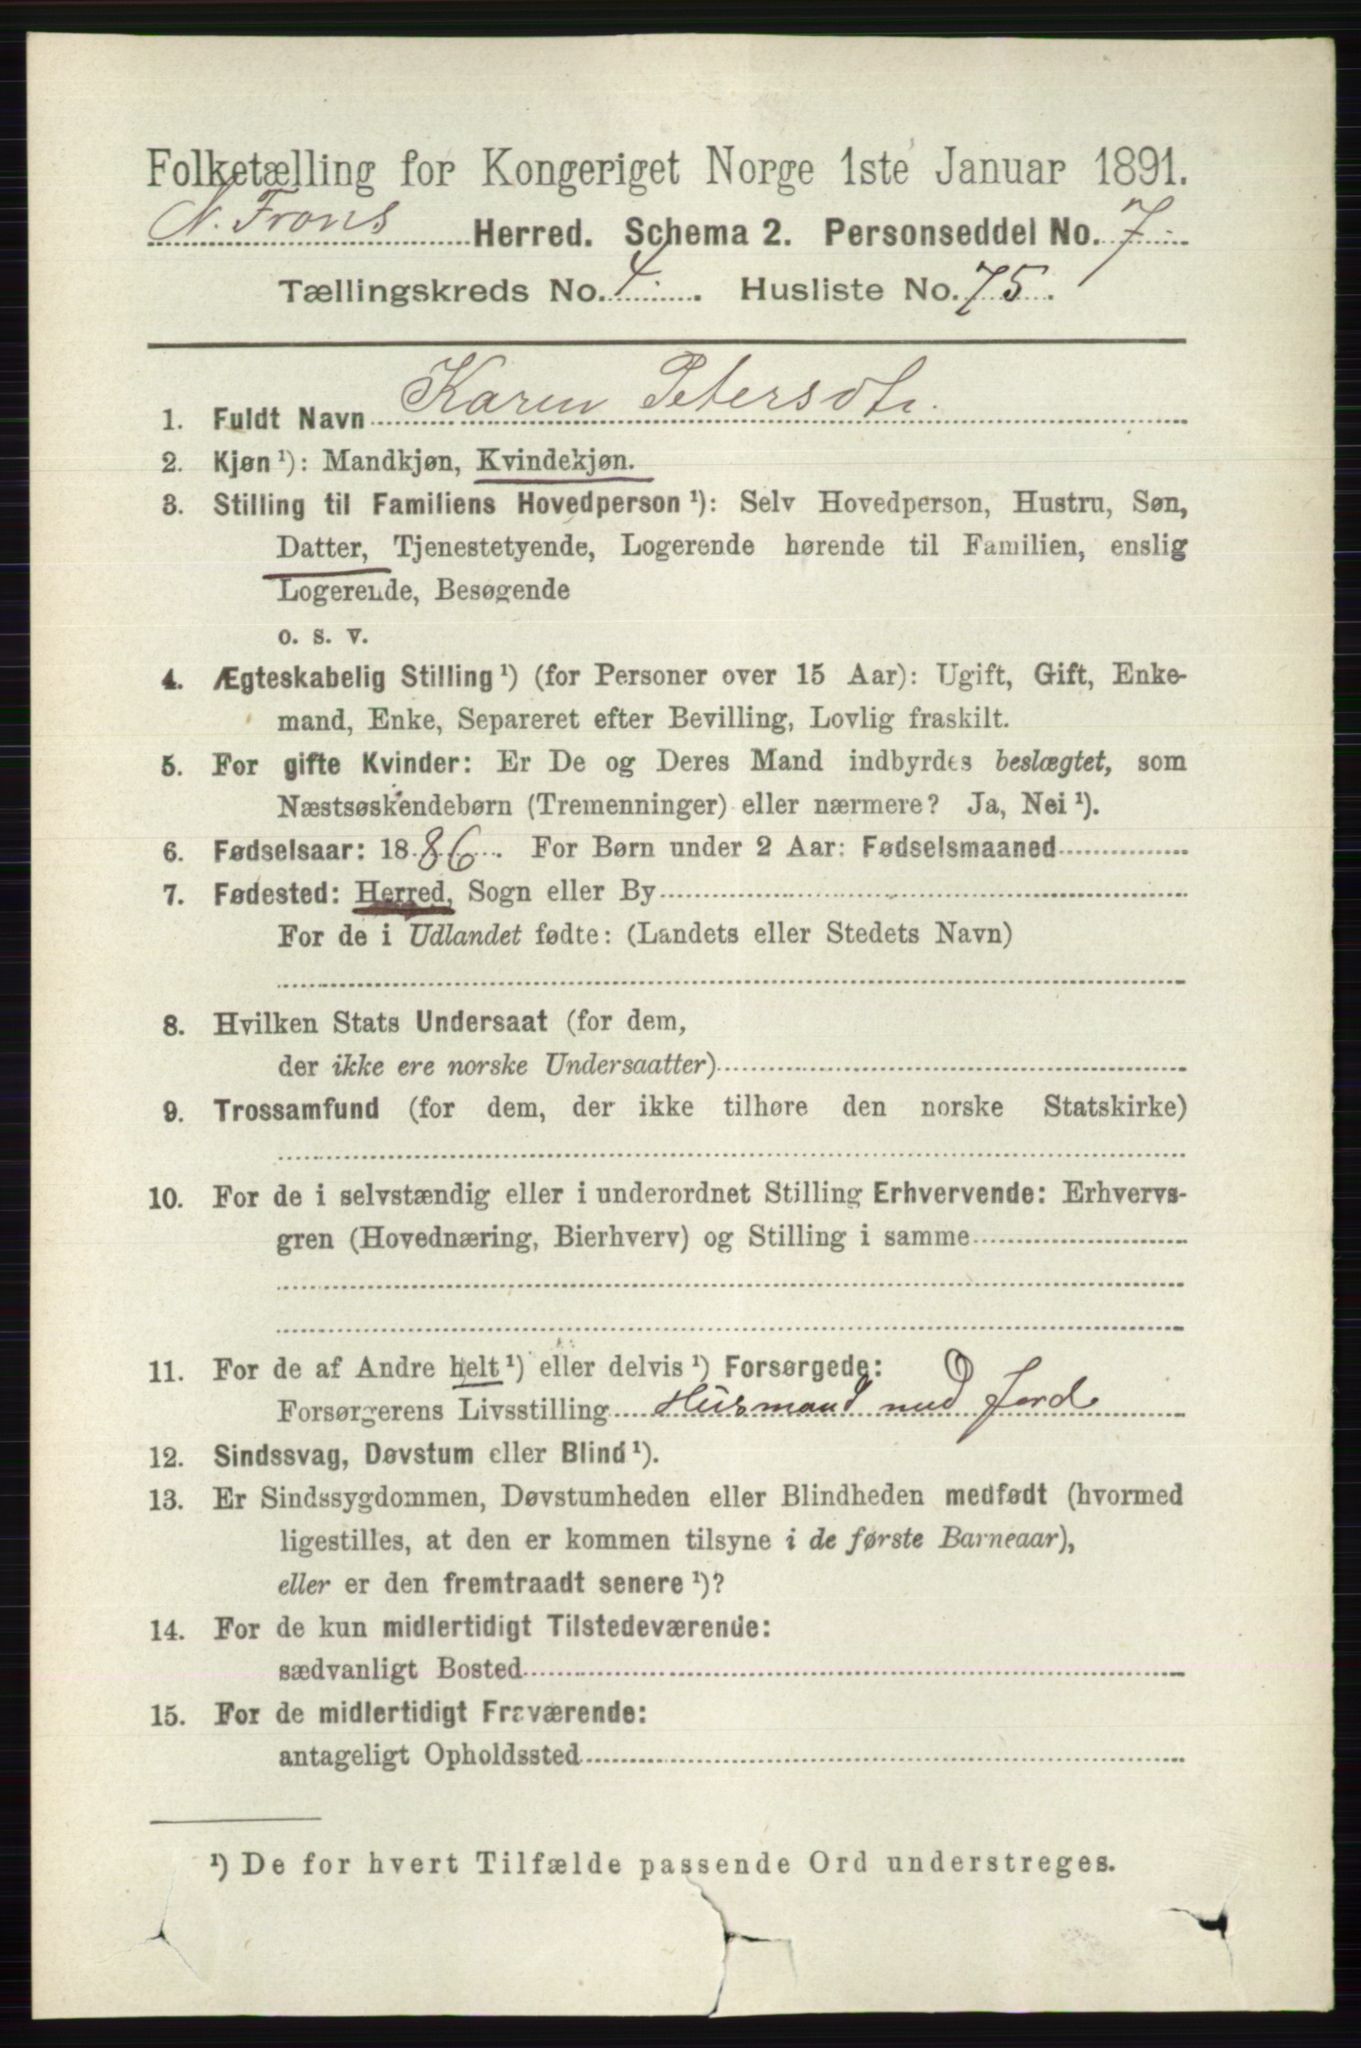 Folketælling for Kongeriget Norge 1ste Januar 1891.
N. Frons Herred. Schema 2. Personseddel No. 7
Tællingskreds No. 4. Husliste No. 75.
1. Fuldt Navn Karen Petersdtr.
2. Kjøn ¹): Mandkjøn, Kvindekjøn.
3. Stilling til Familiens Hovedperson ¹): Selv Hovedperson, Hustru, Søn,
Datter, Tjenestetyende, Logerende hørende til Familien, enslig
Logerende, Besøgende
o. s. v.
4. Ægteskabelig Stilling ¹) (for Personer over 15 Aar): Ugift, Gift, Enke-
mand, Enke, Separeret efter Bevilling, Lovlig fraskilt.
5. For gifte Kvinder: Er De og Deres Mand indbyrdes beslægtet, som
Næstsøskendebørn (Tremenninger) eller nærmere? Ja, Nei ¹).
6. Fødselsaar: 1886. For Børn under 2 Aar: Fødselsmaaned
7. Fødested: Herred, Sogn eller By
For de i Udlandet fødte: (Landets eller Stedets Navn)
8. Hvilken Stats Undersaat (for dem,
der ikke ere norske Undersaatter)
9. Trossamfund (for dem, der ikke tilhøre den norske Statskirke)
10. For de i selvstændig eller i underordnet Stilling Erhvervende: Erhvervs-
gren (Hovednæring, Bierhverv) og Stilling i samme
11. For de af Andre helt ¹) eller delvis ¹) Forsørgede:
Forsørgerens Livsstilling Husmand med Jord
12. Sindssvag, Døvstum eller Blind ¹).
13. Er Sindssygdommen, Døvstumheden eller Blindheden medfødt (hvormed
ligestilles, at den er kommen tilsyne i de første Barneaar),
eller er den fremtraadt senere ¹)?
14. For de kun midlertidigt Tilstedeværende:
sædvanligt Bosted
15. For de midlertidigt Fraværende:
antageligt Opholdssted
¹) De for hvert Tilfælde passende Ord understreges.